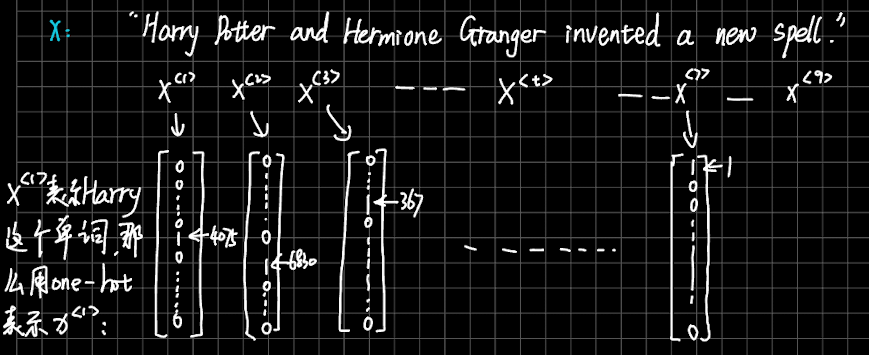 x: "Harry Potter and Hermione Granger invented a new spell."
x<1> x<2> x<3> --- x<t> -- x<7> - x<9>
x<1>表示Harry
这个单词,那
么用one-hot
表示x<1>:
0 0 0 1 0 0 ←4075
0 0 1 0 0 0 ←6830
0 1 0 0 ←367
------
1 0 0 0 ←1